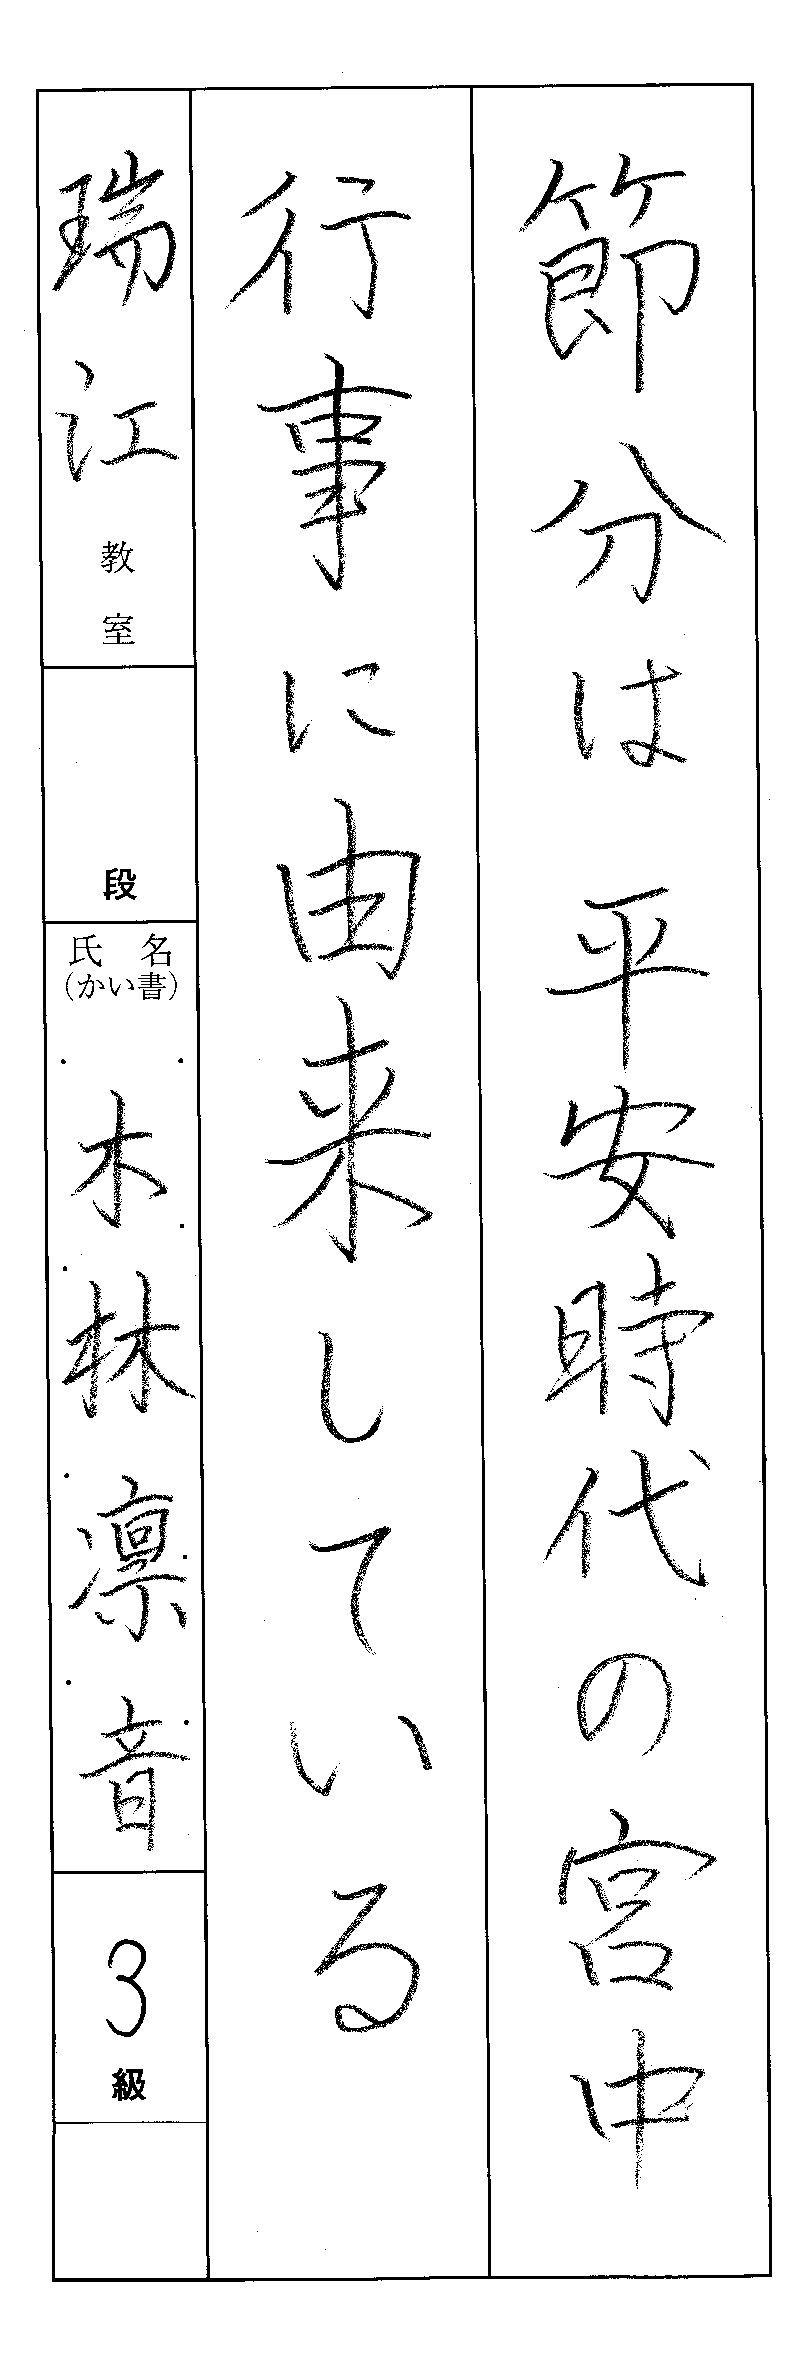 節分は平安時代の宮中
行事に由来している
瑞江教室
段
氏名
(かい書)
木林凛音
3級